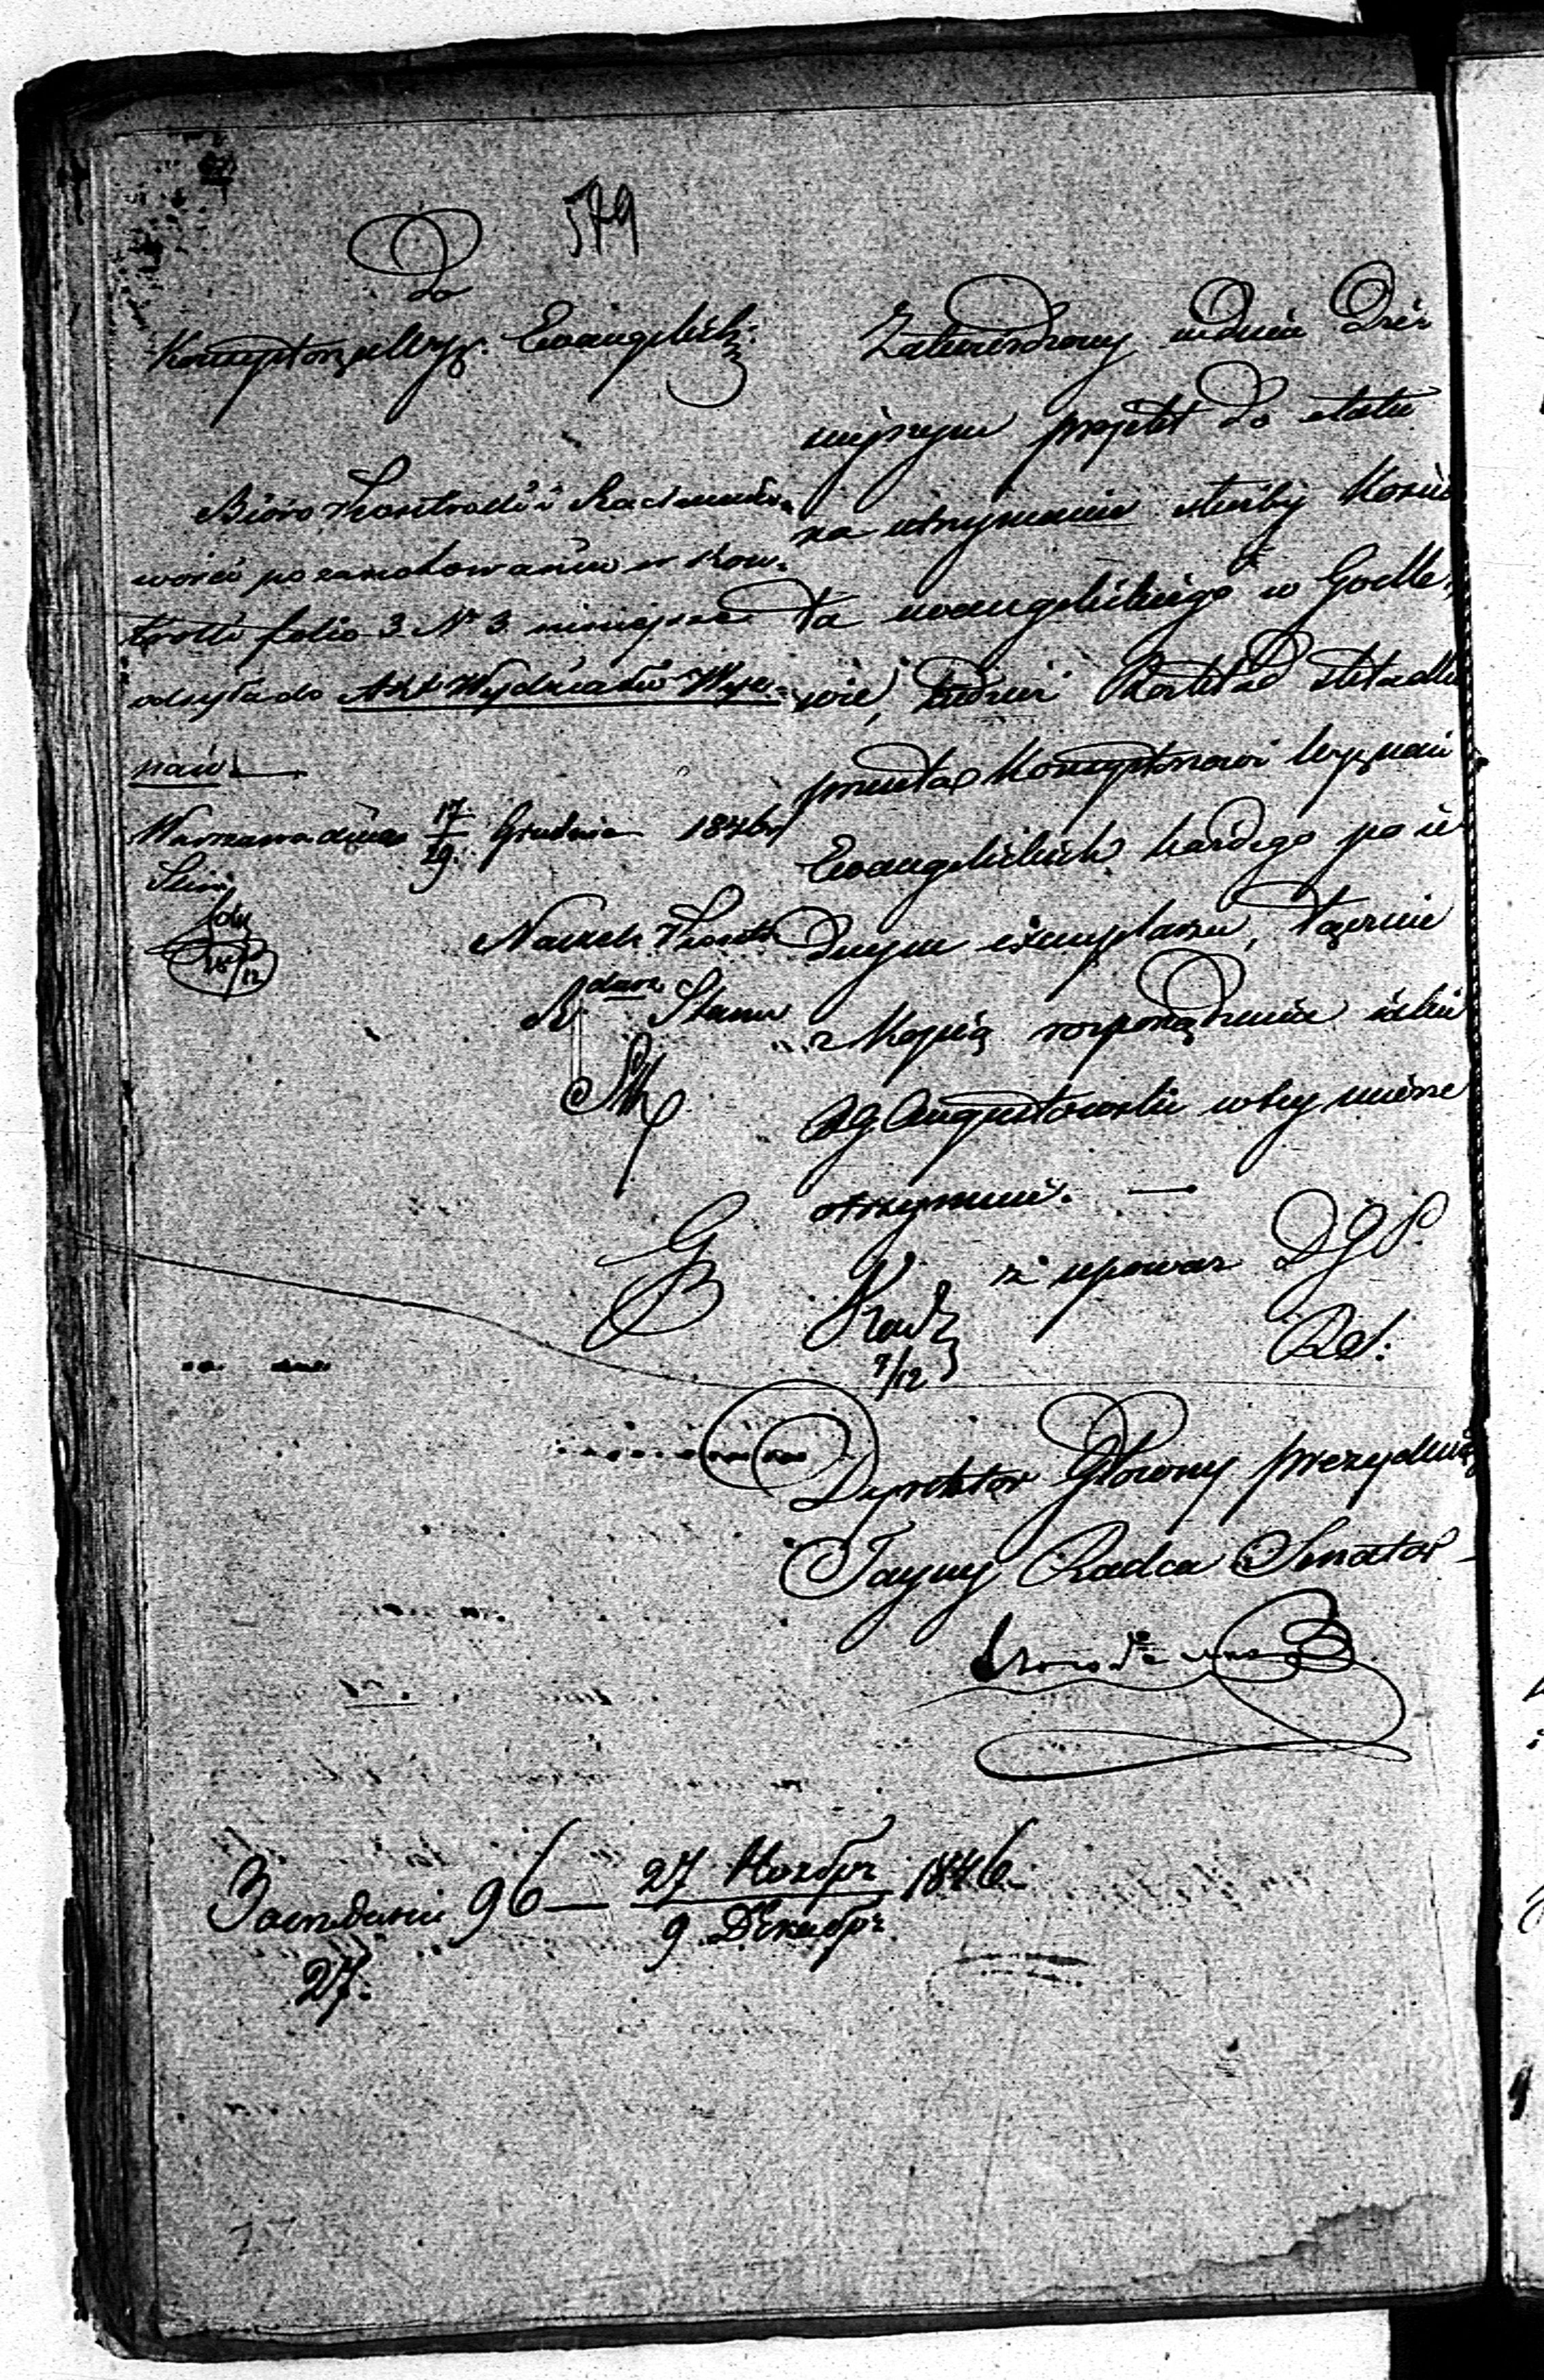 579
Do
Konsystorza Wyz: Ewangelick:
Bióro Kontrolli i Rachunko-
wości po zanotowaniu w Kon-
trolli folio 3 N 3 niniejsze
odsyła do Akt Wydziału Wyz-
nań.
Warszawa dnia 17/29 Grudnia 1846 r
Naczel: Kontr
Radca Stanu
Zatwierdzony w dniu Dzi-
siejszym projekt do etatu
na utrzymanie służby Kościo
ła ewangelickiego w Godle-
wie, tudzież Rozkład składki
przesłać Konsystorzowi Wyznań
Ewangelickich każdego po je
dnym exemplarzu, łącznie
z kopią rozporządzenia jakie
RG Augustowski w tej mierze
otrzymuie. —
z upoważ DGP.
7/12
Dyrektor Główny prezydując
Tayny Radca Senator
Заседание 96 — 27 Ноября / 9 Декабря 1846.
27.